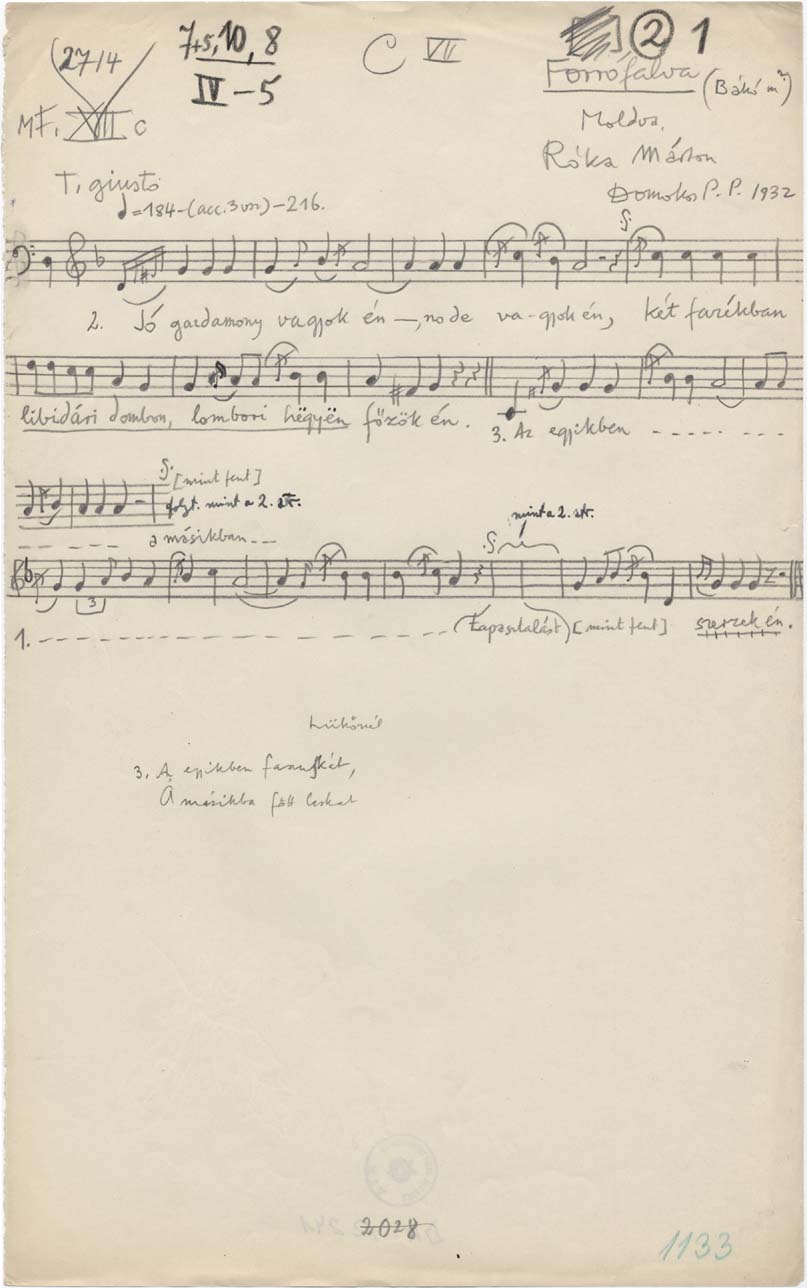 27/4
7+5, 10, 8
IV – 5
C VII
2 1
Forrófalva (Bákó m.)
MF. XII c
Moldva.
Róka Márton
Domokos P. P. 1932
T. giusto
= 184 – (acc. 3 vsz) – 216.
2. Jó gazdamony vagyok én –, no de va-gyok én, két fazékban
libidári dombon, lombori hëgyën főzök én. 3. Az egyikben
[mint fent]
folyt. mint a 2. str.
a másikban
mint a 2. str.
3
1. (Tapasztalást) [mint fent] szerzek én.
3. A egyikben
A másikba főtt
2028
1133